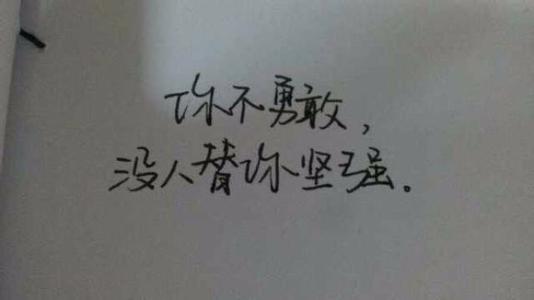 你不勇敢，
没人替你坚强。